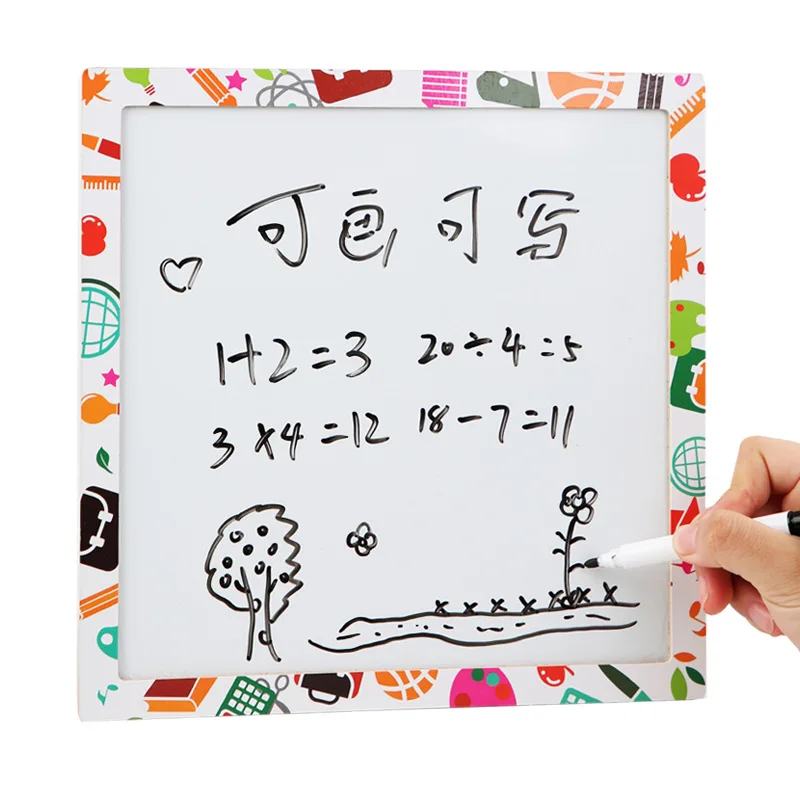 可画可写
1+2=3 20÷4=5
3×4=12 18-7=11